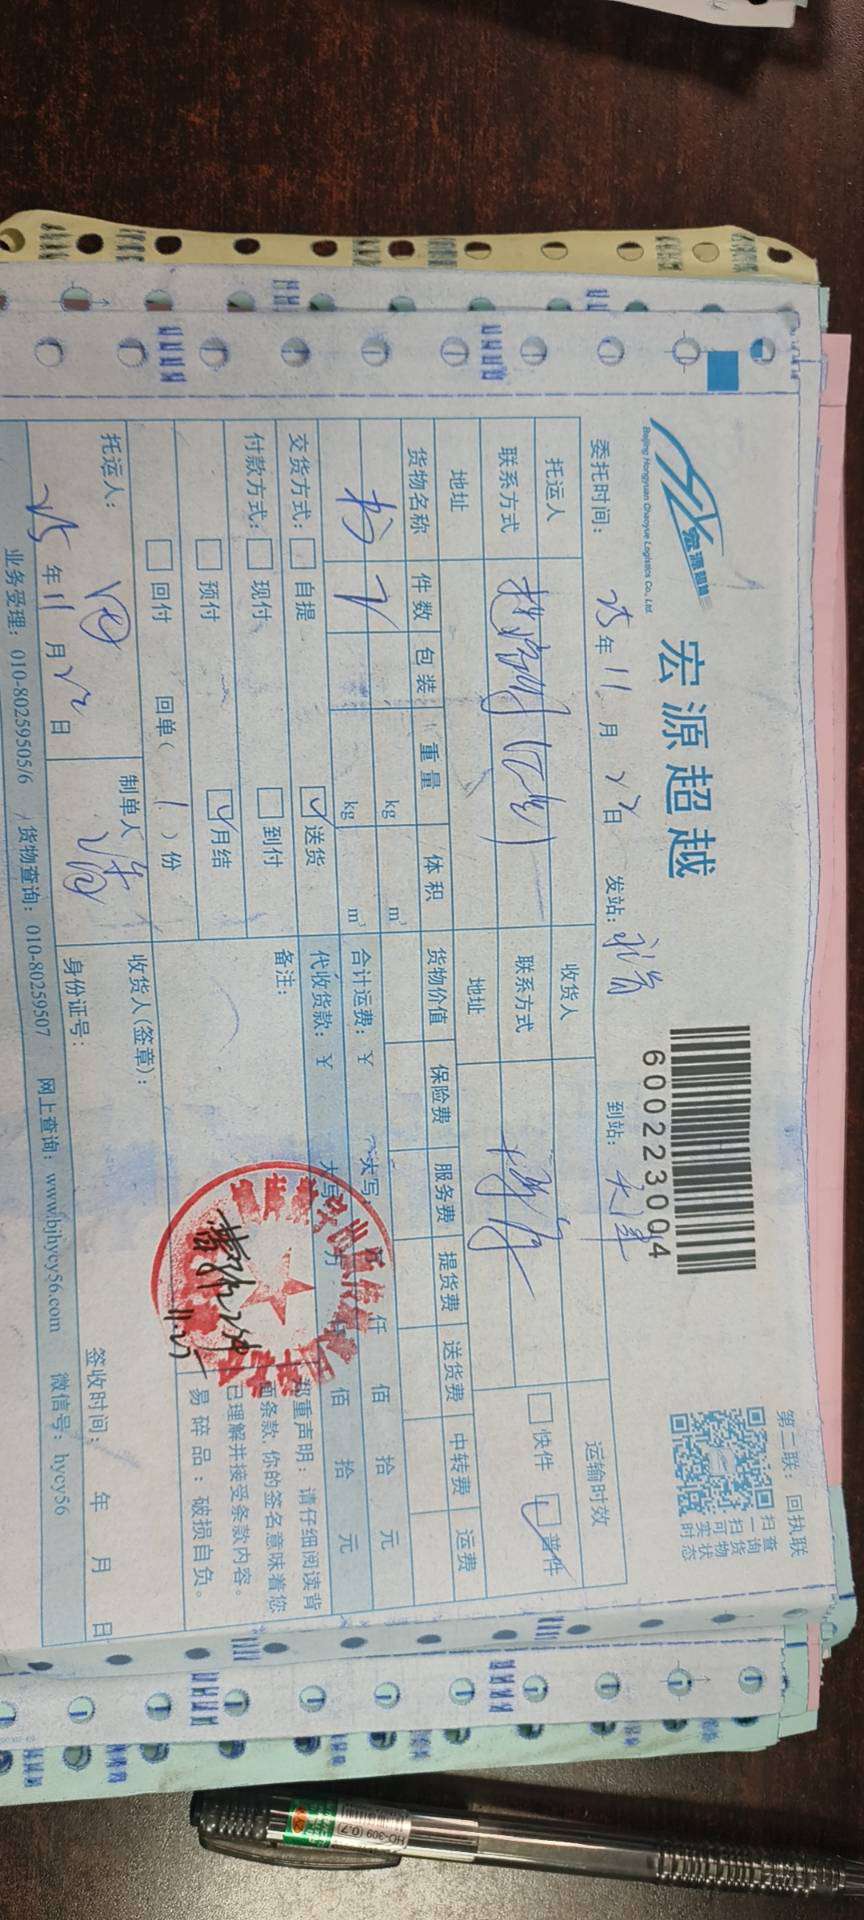 第二联：回执联
宏源超越
宏源超越
Beijing Hongyuan Chaoyue Logistics Co., Ltd.
6002223004
扫一扫可实时
查询货物状态
委托时间： 25 年 11 月 22 日 发站： 到站： 天津
托运人 收货人 运输时效
联系方式 联系方式 快件 普件
地址 地址
货物名称 件数 包装 重量 体积 货物价值 保险费 服务费 提货费 送货费 中转费 运费
书 2 kg m³
kg m³
合计运费：￥ 大写 仟 佰 拾 元
交货方式： 自提 送货 代收货款：￥ 大写 万 佰 拾 元
付款方式： 现付 到付 备注：
预付 月结
回付 回单（ 1 ）份
郑重声明：请仔细阅读背
面条款，你的签名意味着您
已理解并接受条款内容。
易碎品：破损自负。
11.25
托运人： 制单人 收货人(签章)：
25 年 11 月 22 日 身份证号： 签收时间： 年 月 日
业务受理：010-80259505/6 货物查询：010-80259507 网上查询：www.bjhycy56.com 微信号：hycy56
HO-309 (0.7)